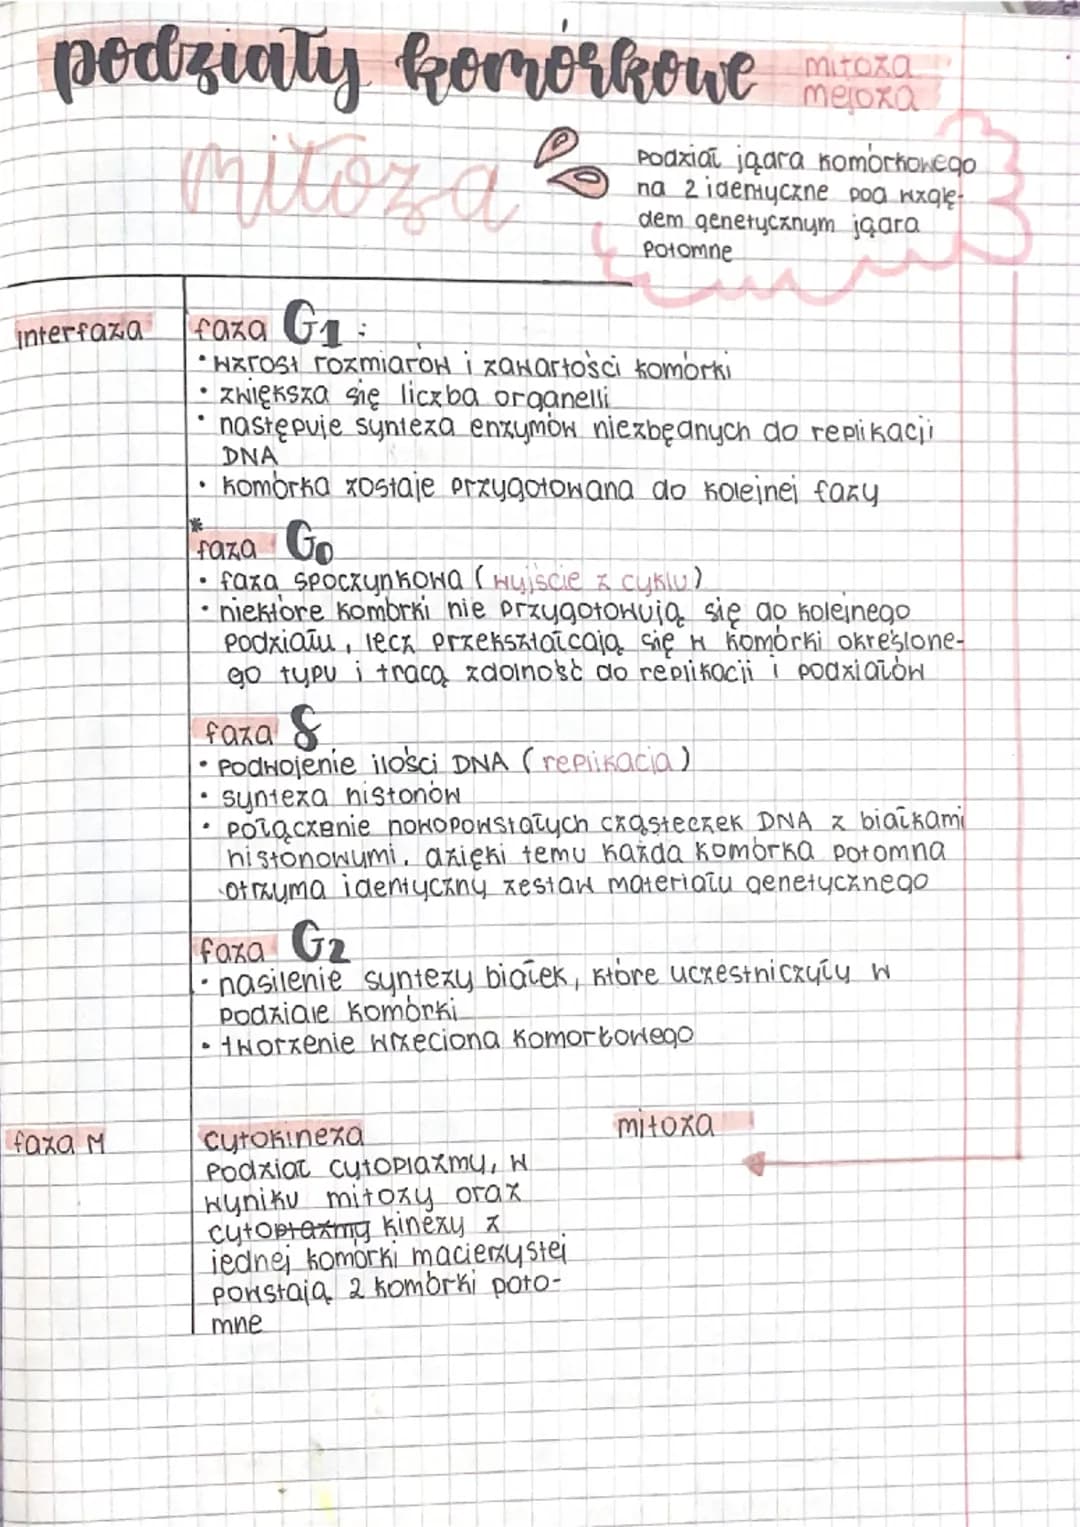 podziały komórkowe
mitoza
mejoza
mitoza
Podział jądra komórkowego
na 2 identyczne pod wzglę-
dem genetycznym jądra
potomne
interfaza
faza G1:
• wzrost rozmiarów i zawartości komórki
• zwiększa się liczba organelli
• następuje synteza enzymów niezbędnych do replikacji
DNA
• komórka zostaje przygotowana do kolejnej fazy
*
faza G0
• faza spoczynkowa (wyjście z cyklu)
• niektóre komórki nie przygotowują się do kolejnego
podziału, lecz przekształcają się w komórki określone-
go typu i tracą zdolność do replikacji i podziałów
faza S
• podwojenie ilości DNA (replikacja)
• synteza histonów
• połączenie nowopowstałych cząsteczek DNA z białkami
histonowymi. dzięki temu każda komórka potomna
otrzyma identyczny zestaw materiału genetycznego
faza G2
• nasilenie syntezy białek, które uczestniczyły w
podziale komórki
• tworzenie wrzeciona komórkowego
faza M
cytokineza
podział cytoplazmy, w
wyniku mitozy oraz
cytoplazmy kinezy z
jednej komórki macierzystej
powstają 2 komórki poto-
mne
mitoza